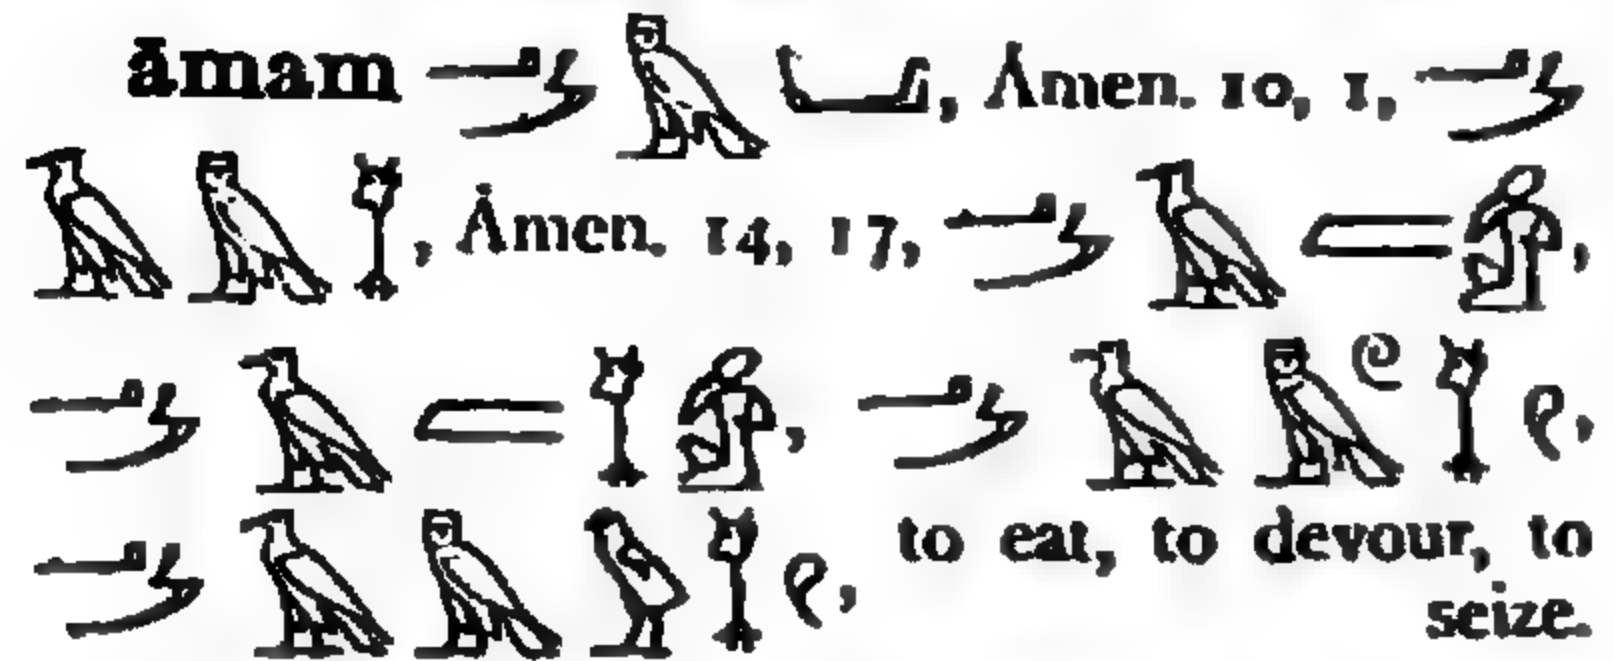 āmam 𓂝𓌳𓅓 , Ȧmen. 10, 1, 𓂝𓌳
𓄿𓅓 , Ȧmen. 14, 17, 𓂝𓌳𓄿𓐝𓀁,
𓂝𓌳𓄿𓐝 𓀁, 𓂝𓌳𓄿𓅓𓏲 𓏲,
𓂝𓌳𓄿𓅓𓅱 𓏲, to eat, to devour, to
seize.